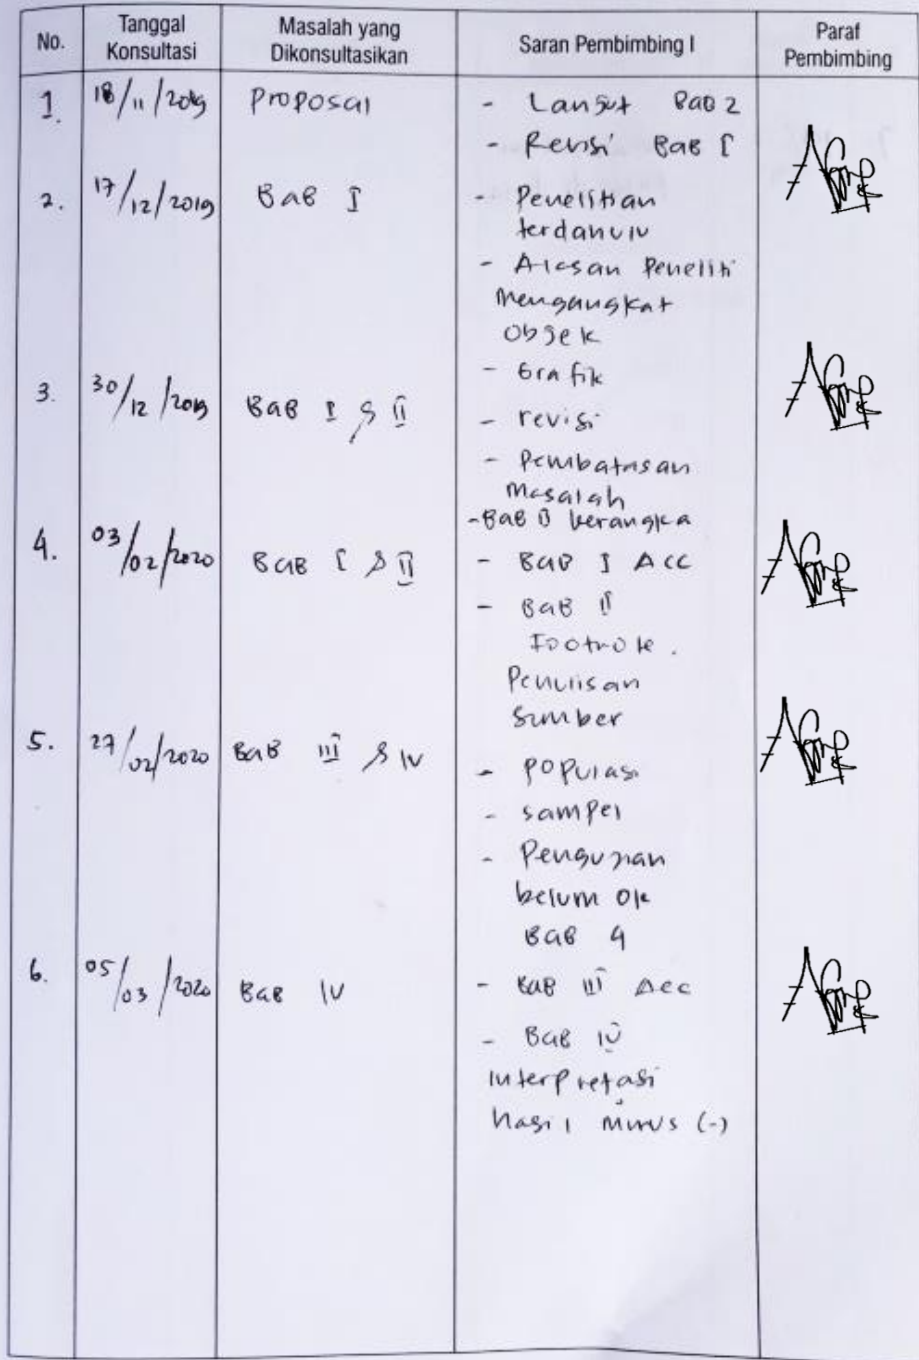 No. Tanggal Konsultasi Masalah yang Dikonsultasikan Saran Pembimbing I Paraf Pembimbing
1. 18/11/2019 Proposal - Lanjut BAB 2
- Revisi BAB I
2. 17/12/2019 BAB I - Penelitian
terdahulu
- Alasan Peneliti
Mengangkat
Objek
- Grafik
3. 30/12/2019 BAB I & II
- revisi
- Pembatasan
Masalah
- BAB II kerangka
4. 03/02/2020 BAB I & II - BAB I Acc
- BAB II
Footnote.
Penulisan
Sumber
5. 27/02/2020 BAB III & IV
- Populasi
- sampel
- Pengujian
belum ok
BAB 4
6. 05/03/2020 BAB IV - BAB III Acc
- BAB IV
Interpretasi
hasil minus (-)